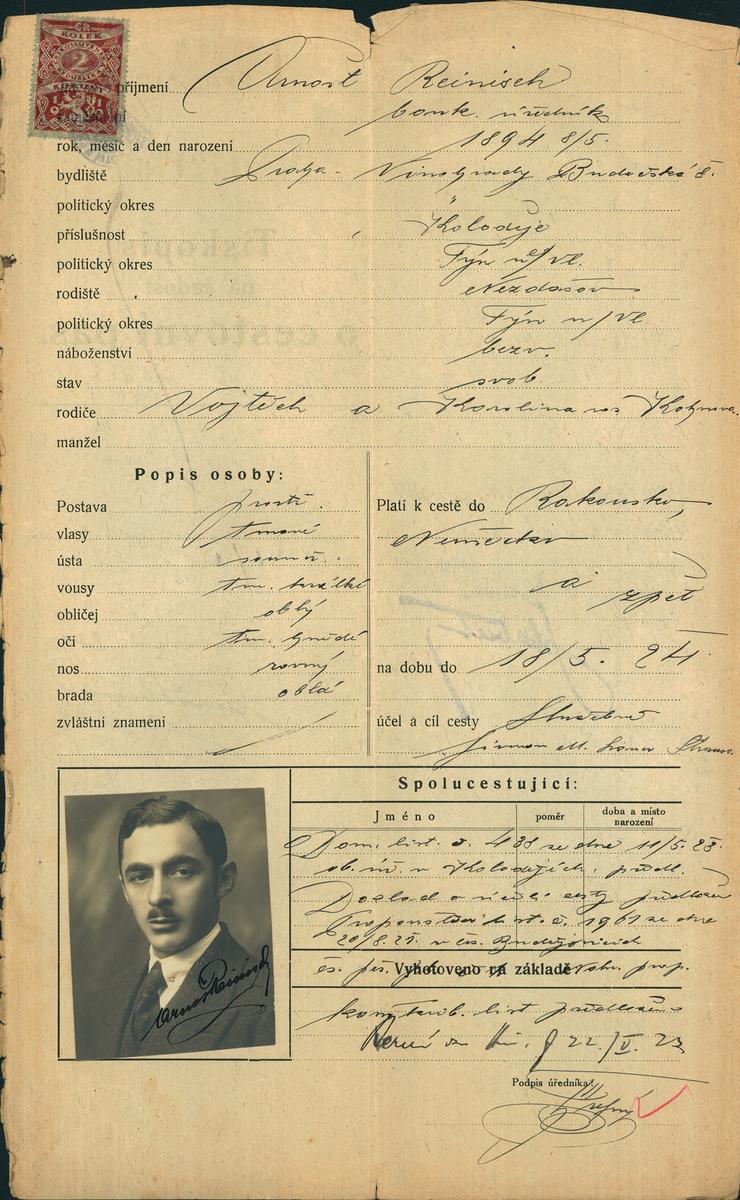 ČR
KOLEK
2
příjmení Arnošt Reinisch
bank. úředník
rok, měsíc a den narození 1894 8/5.
bydliště Praha - Vinohrady Budečská 8.
politický okres "
příslušnost Koloděje
politický okres Týn n/Vl.
rodiště Nezdašov
politický okres Týn n/Vl.
náboženství bezv.
stav svob.
rodiče Vojtěch a Karolina roz
manžel
Popis osoby:
Postava prostř.
vlasy tmavé
ústa souměr.
vousy tm. krátké
obličej oblý
oči tm. hnědé
nos rovný
brada oblá
zvláštní znamení
Platí k cestě do Rakouska,
Německa
a zpět
na dobu do 18/5. 24
účel a cíl cesty Služebně
firmou
Spolucestující:
Jméno poměr doba a místo narození
Dom. list. č. 438 ze dne 11/5. 23.
ob. úř. v Kolodějích, předl.
Doklad o cesty předložen
č. 1961 ze dne
20/8. 21. v Čes. Budějovicích
Vyhotoveno na základě
list předložen
22./V. 23
Podpis úředníka:
Arnošt Reinisch